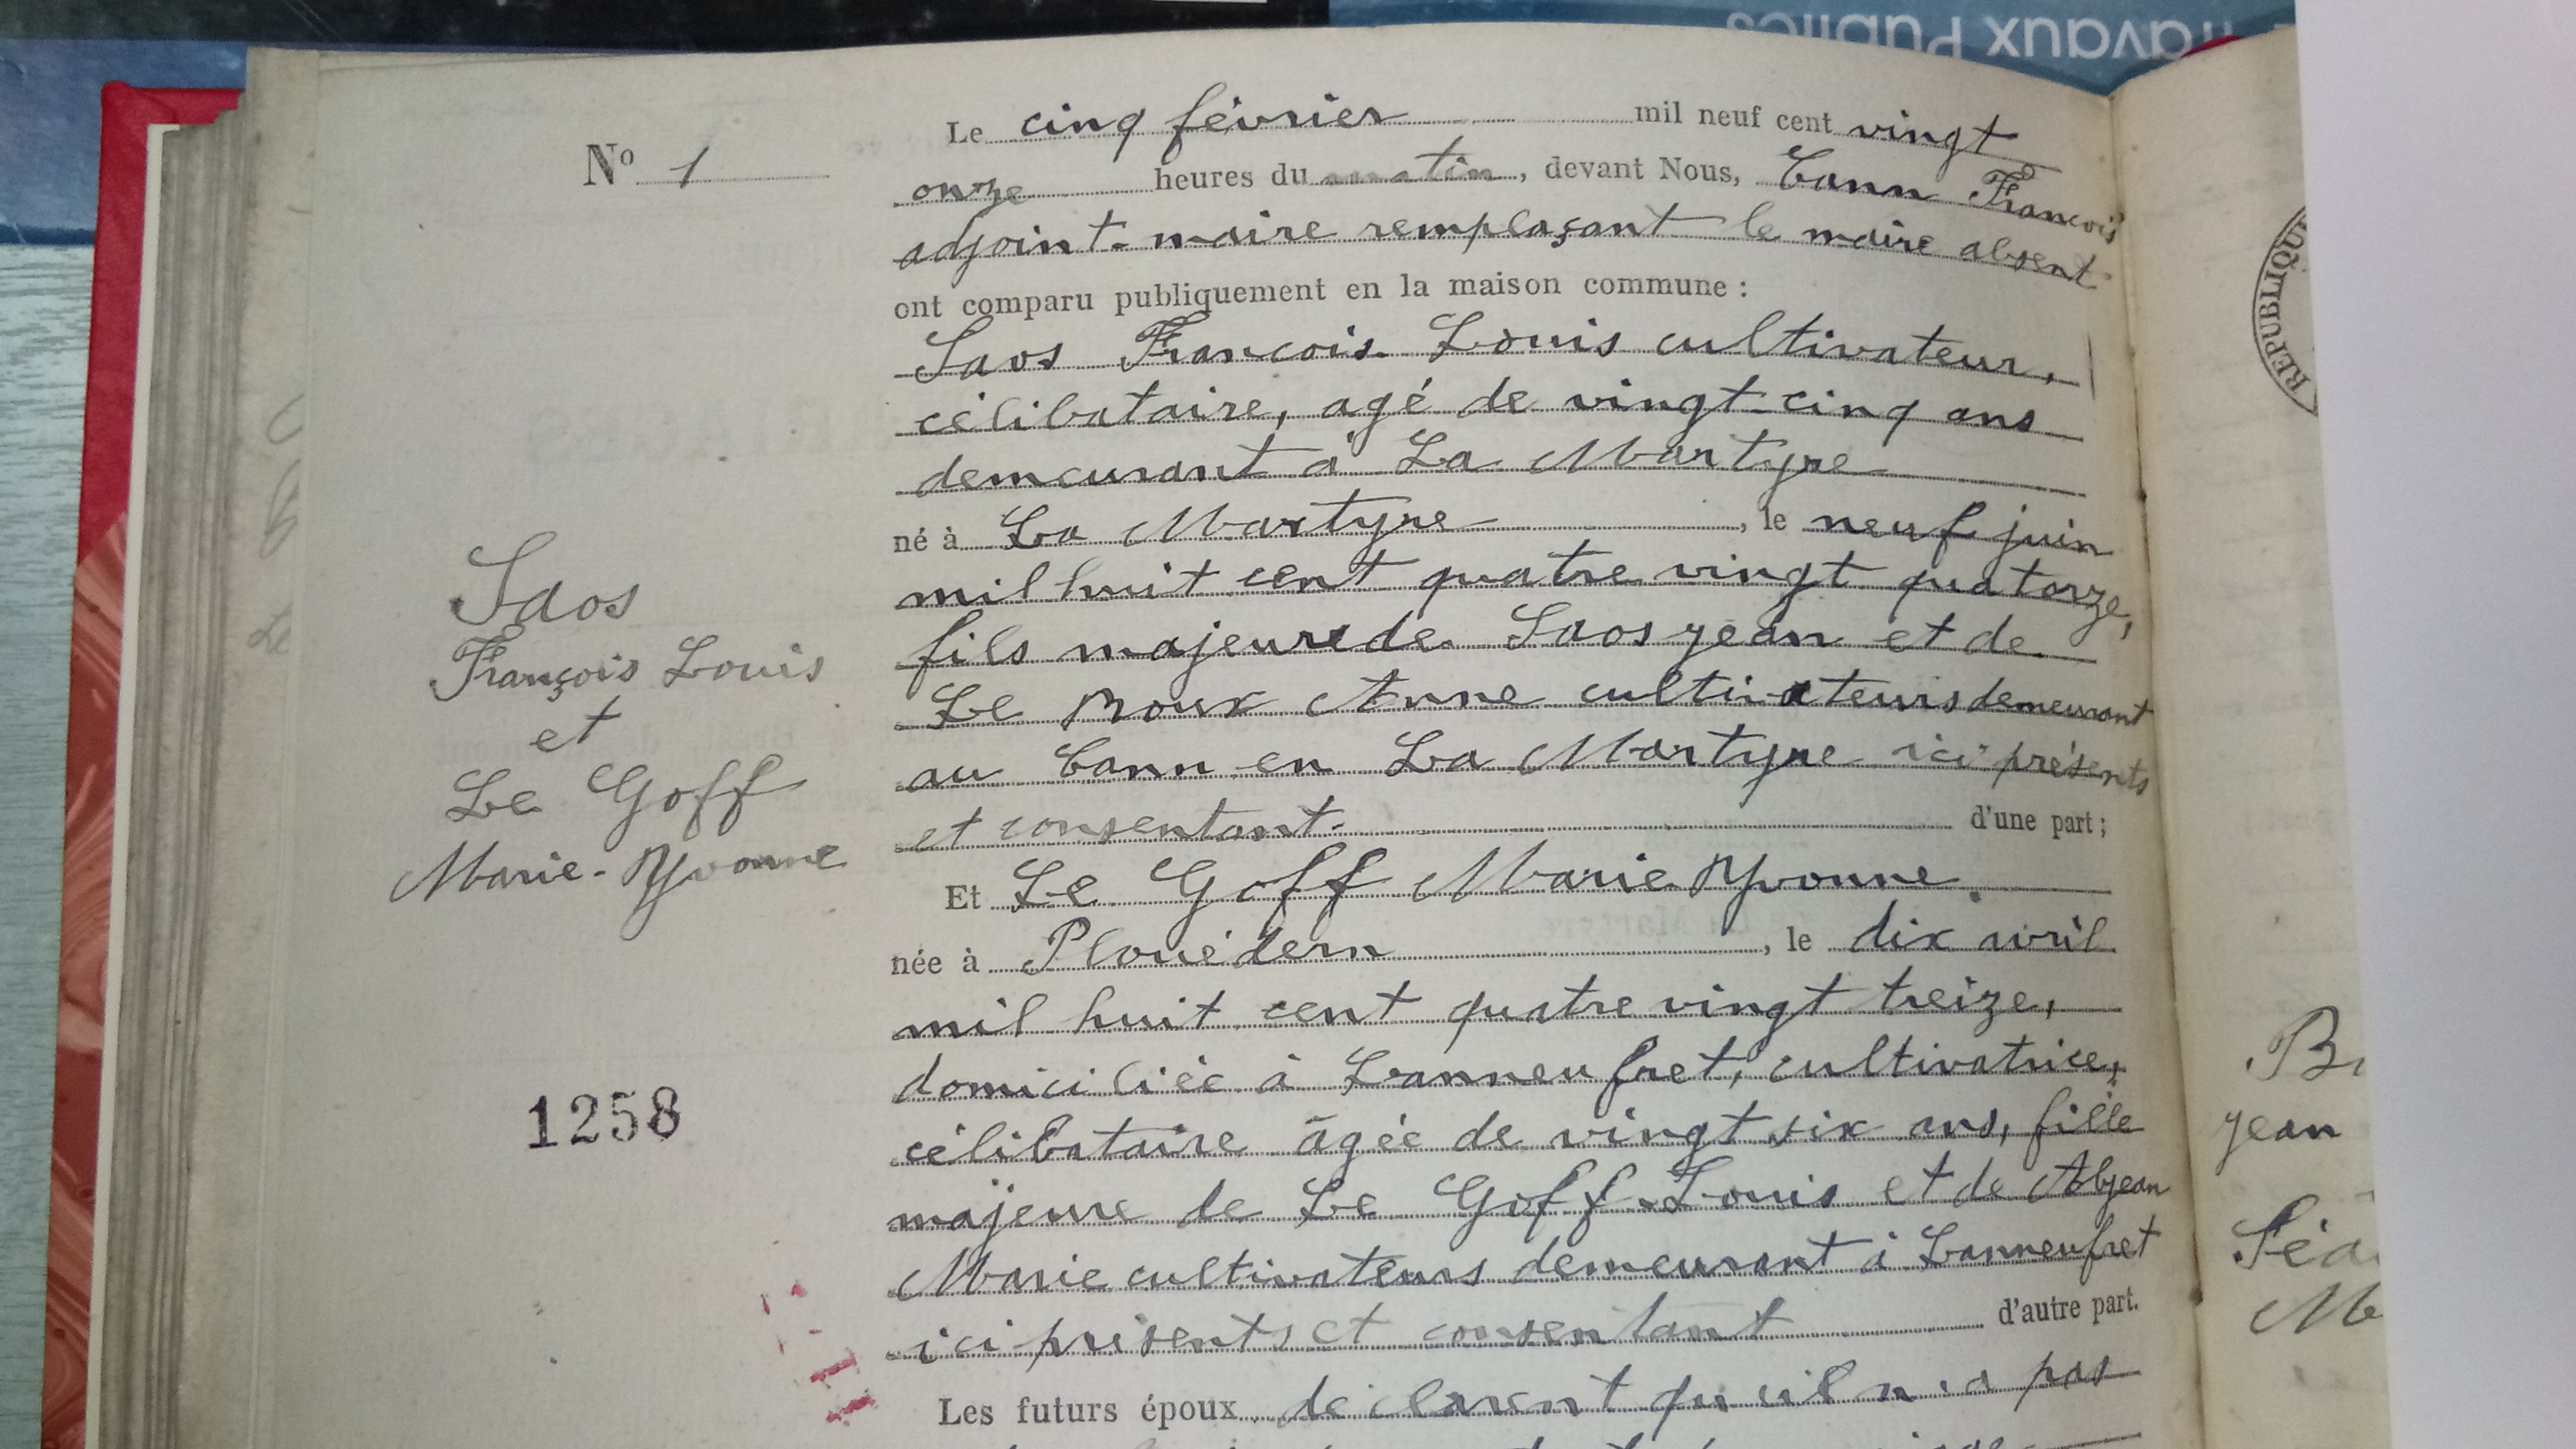 Travaux Publics
N° 1
Le cinq février mil neuf cent vingt
onze heures du matin, devant Nous, Cann François
adjoint-maire remplaçant le maire absent
ont comparu publiquement en la maison commune :
Saos François Louis cultivateur,
célibataire, agé de vingt-cinq ans
demeurant à La Martyre
né à La Martyre, le neuf juin
mil huit cent quatre vingt quatorze,
fils majeure de Saos jean et de
Le Roux Anne cultivateurs demeurant
au Cann en La Martyre ici présents
et consentant. d'une part ;
Et Le Goff Marie Yvonne.
née à Plouédern, le dix avril
mil huit cent quatre vingt treize,
domiciliée à Lanneufret, cultivatrice,
célibataire âgée de vingt six ans, fille
majeure de Le Goff Louis et de Abjean
Marie cultivateurs demeurant à Lanneufret
ici présents et consentant d'autre part.
Les futurs époux déclarent qu'il n'a pas
Saos
François Louis
et
Le Goff
Marie-Yvonne
1258
REPUBLIQU
jean